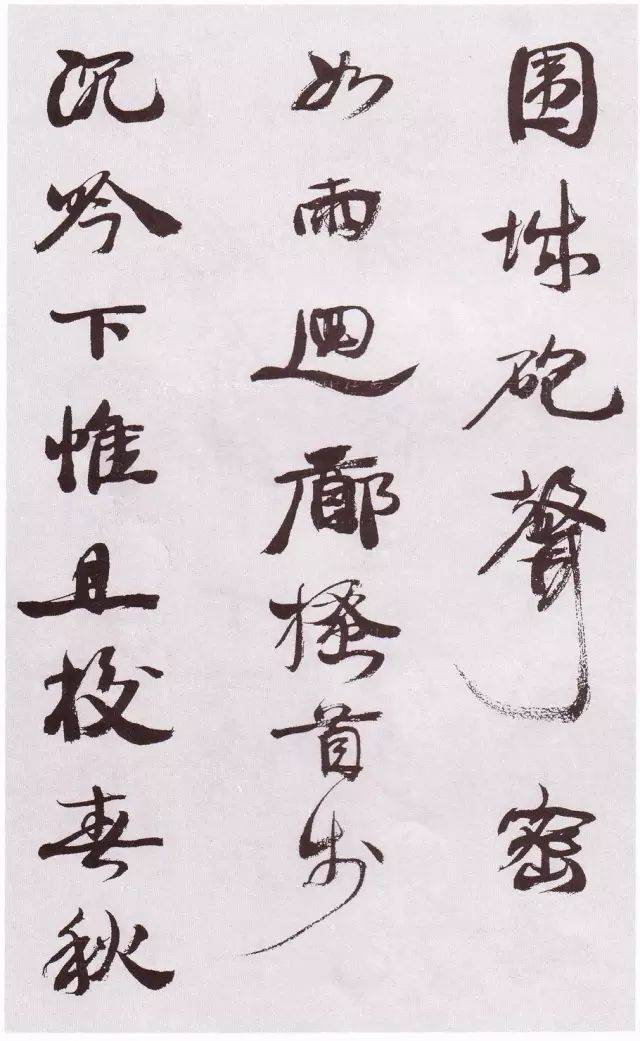 围城砲聲密
如雨迴廊搔首步
沉吟下惟且校春秋